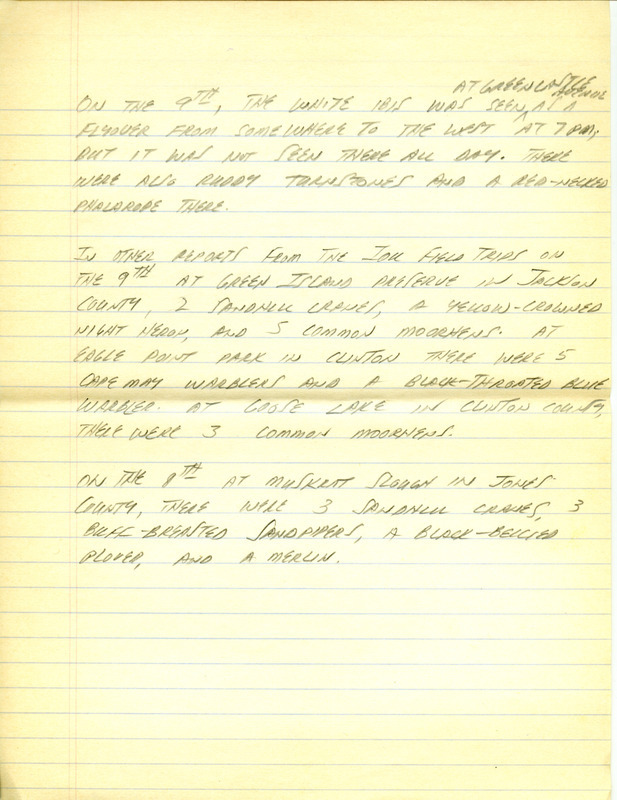 AT GREENCASTLE AVENUE
ON THE 9TH, THE WHITE IBIS WAS SEEN, AS A
FLYOVER FROM SOMEWHERE TO THE WEST AT 7 PM;
BUT IT WAS NOT SEEN THERE ALL DAY. THERE
WERE ALSO RUDDY TURNSTONES AND A RED-NECKED
PHALAROPE THERE.
IN OTHER REPORTS FROM THE IOU FIELD TRIPS ON
THE 9TH AT GREEN ISLAND PRESERVE IN JACKSON
COUNTY, 2 SANDHILL CRANES, A YELLOW-CROWNED
NIGHT HERON, AND 5 COMMON MOORHENS. AT
EAGLE POINT PARK IN CLINTON THERE WERE 5
CAPE MAY WARBLERS AND A BLACK-THROATED BLUE
WARBLER. AT GOOSE LAKE IN CLINTON COUNTY,
THERE WERE 3 COMMON MOORHENS.
ON THE 8TH AT MUSKRAT SLOUGH IN JONES
COUNTY, THERE WERE 3 SANDHILL CRANES, 3
BUFF-BREASTED SANDPIPERS, A BLACK-BELLIED
PLOVER, AND A MERLIN.